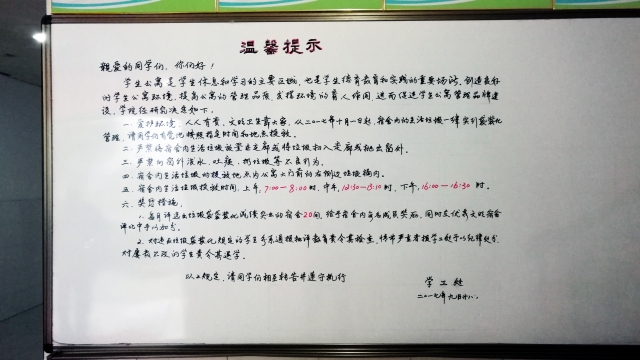 温馨提示
亲爱的同学们，你们好！
学生公寓是学生休息和学习的主要区域，也是学生德育教育和实践的重要场所，创造良好
的学生公寓环境，提高公寓的管理品质，发挥环境的育人作用，进而促进学生公寓管理品牌建
设，学院经研究决定如下。
一.爱护环境，人人有责，文明卫生靠大家，从二〇一七年十月一日起，宿舍内的生活垃圾一律实行袋装化
管理，请同学们自觉地按照指定时间和地点投放。
二.严禁将宿舍内生活垃圾放置在走廊或将垃圾扫入走廊或抛出窗外。
三.严禁向窗外泼水、吐痰、扔垃圾等不良行为。
四.宿舍内生活垃圾的投放地点为公寓大门前的右侧边垃圾桶内。
五.宿舍内生活垃圾投放时间，上午：7:00-8:00时，中午，12:30-13:10时，下午，16:00-16:30时。
六.奖惩措施。
1.每月评选出垃圾袋装化成绩突出的宿舍20间，给予宿舍内每名成员奖品，同时在优秀文明宿舍
评比中予以加分。
2.对违反垃圾袋装化规定的学生予以通报批评教育责令其检查，情节严重者按学工处予以纪律处分
对屡教不改的学生责令其退学。
以上规定，请同学们相互转告并遵守执行
学工处
二〇一七年九月廿八.